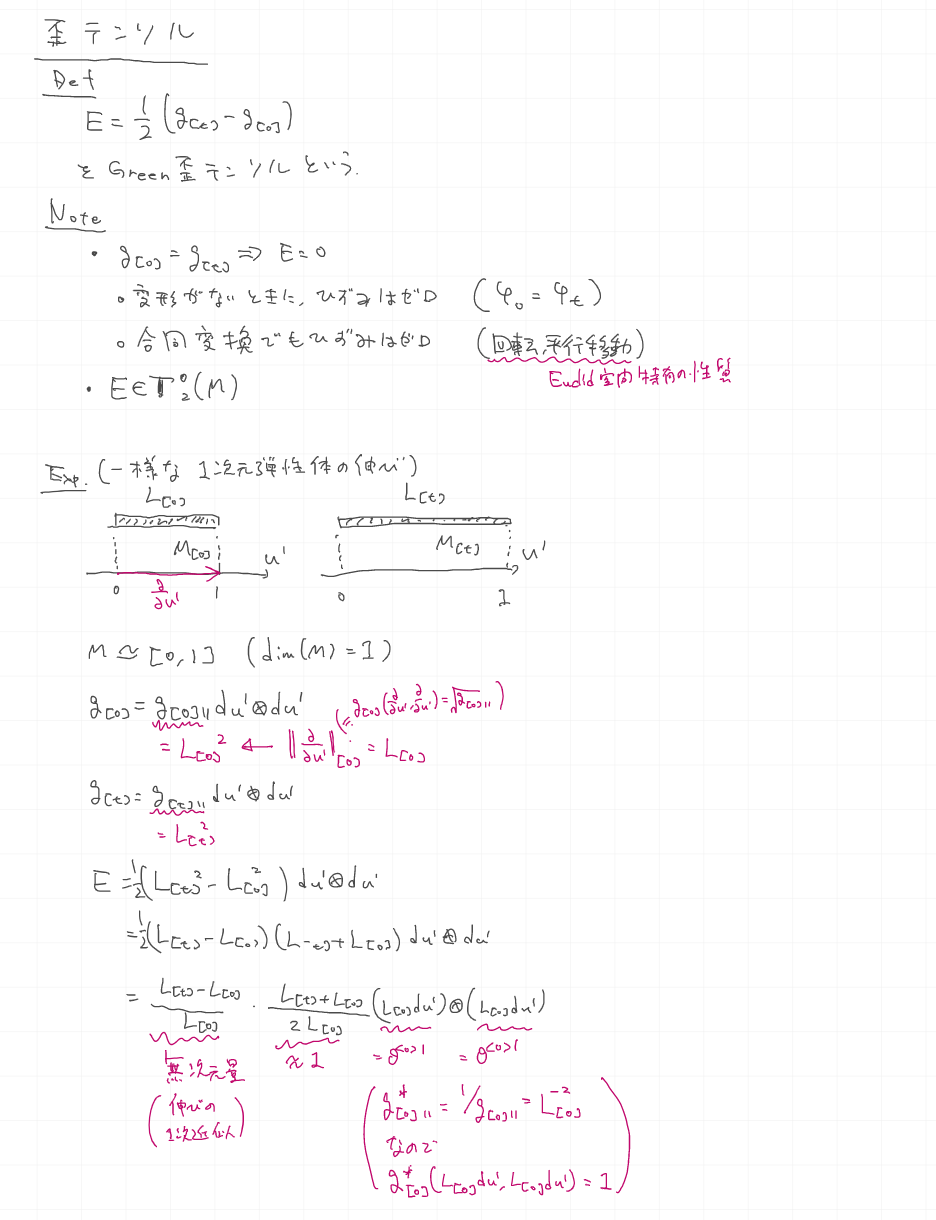 歪テンソル
Def
E = 1/2 (g[t] - g[0])
をGreen歪テンソルという.
Note
・ g[0] = g[t] ⇒ E = 0
○ 変形がないときに, ひずみはゼロ (φ₀ = φ_t)
○ 合同変換でもひずみはゼロ (回転, 平行移動)
Euclid空間特有の性質
・ E ∈ T⁰₂(M)
Exp. (一様な1次元弾性体の伸び)
L[0] L[t]
M[0] u¹ M[t] u¹
0 ∂/∂u¹ 1 0 1
M ≃ [0,1] (dim(M) = 1)
g[0] = g[0]₁₁ du¹⊗du¹ (∵ g[0](∂/∂u¹, ∂/∂u¹) = √g[0]₁₁)
= L[0]² ← ‖∂/∂u¹‖[0] = L[0]
g[t] = g[t]₁₁ du¹⊗du¹
= L[t]²
E = 1/2 (L[t]² - L[0]²) du¹⊗du¹
= 1/2 (L[t] - L[0]) (L[t] + L[0]) du¹⊗du¹
= (L[t] - L[0])/L[0] · (L[t] + L[0])/2L[0] (L[0]du¹)⊗(L[0]du¹)
無次元量 ≈ 1 = θ<0>1 = θ<0>1
(伸びの
1次近似)
(g*[0]₁₁ = 1/g[0]₁₁ = L[0]⁻²
なので
g*[0](L[0]du¹, L[0]du¹) = 1)